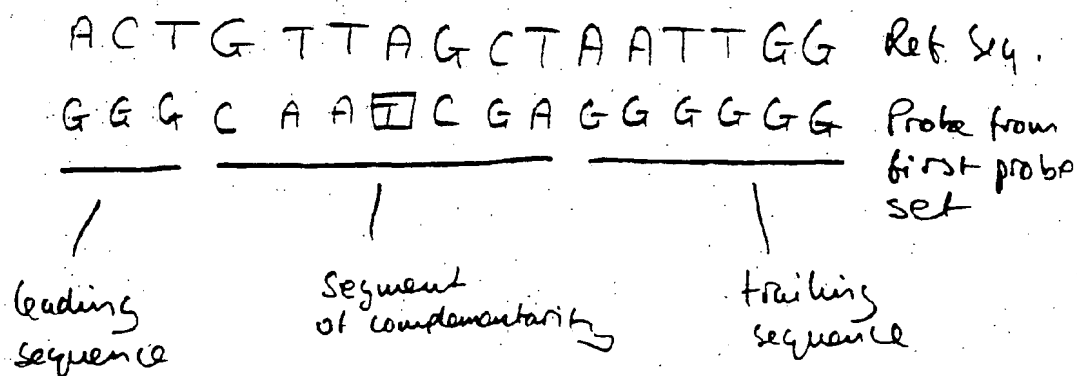 A C T G T T A G C T A A T T G G Ref. Seq.
G G G C A A T C G A G G G G G G Probe from
first probe
set
leading
sequence
segment
of complementarity
trailing
sequence